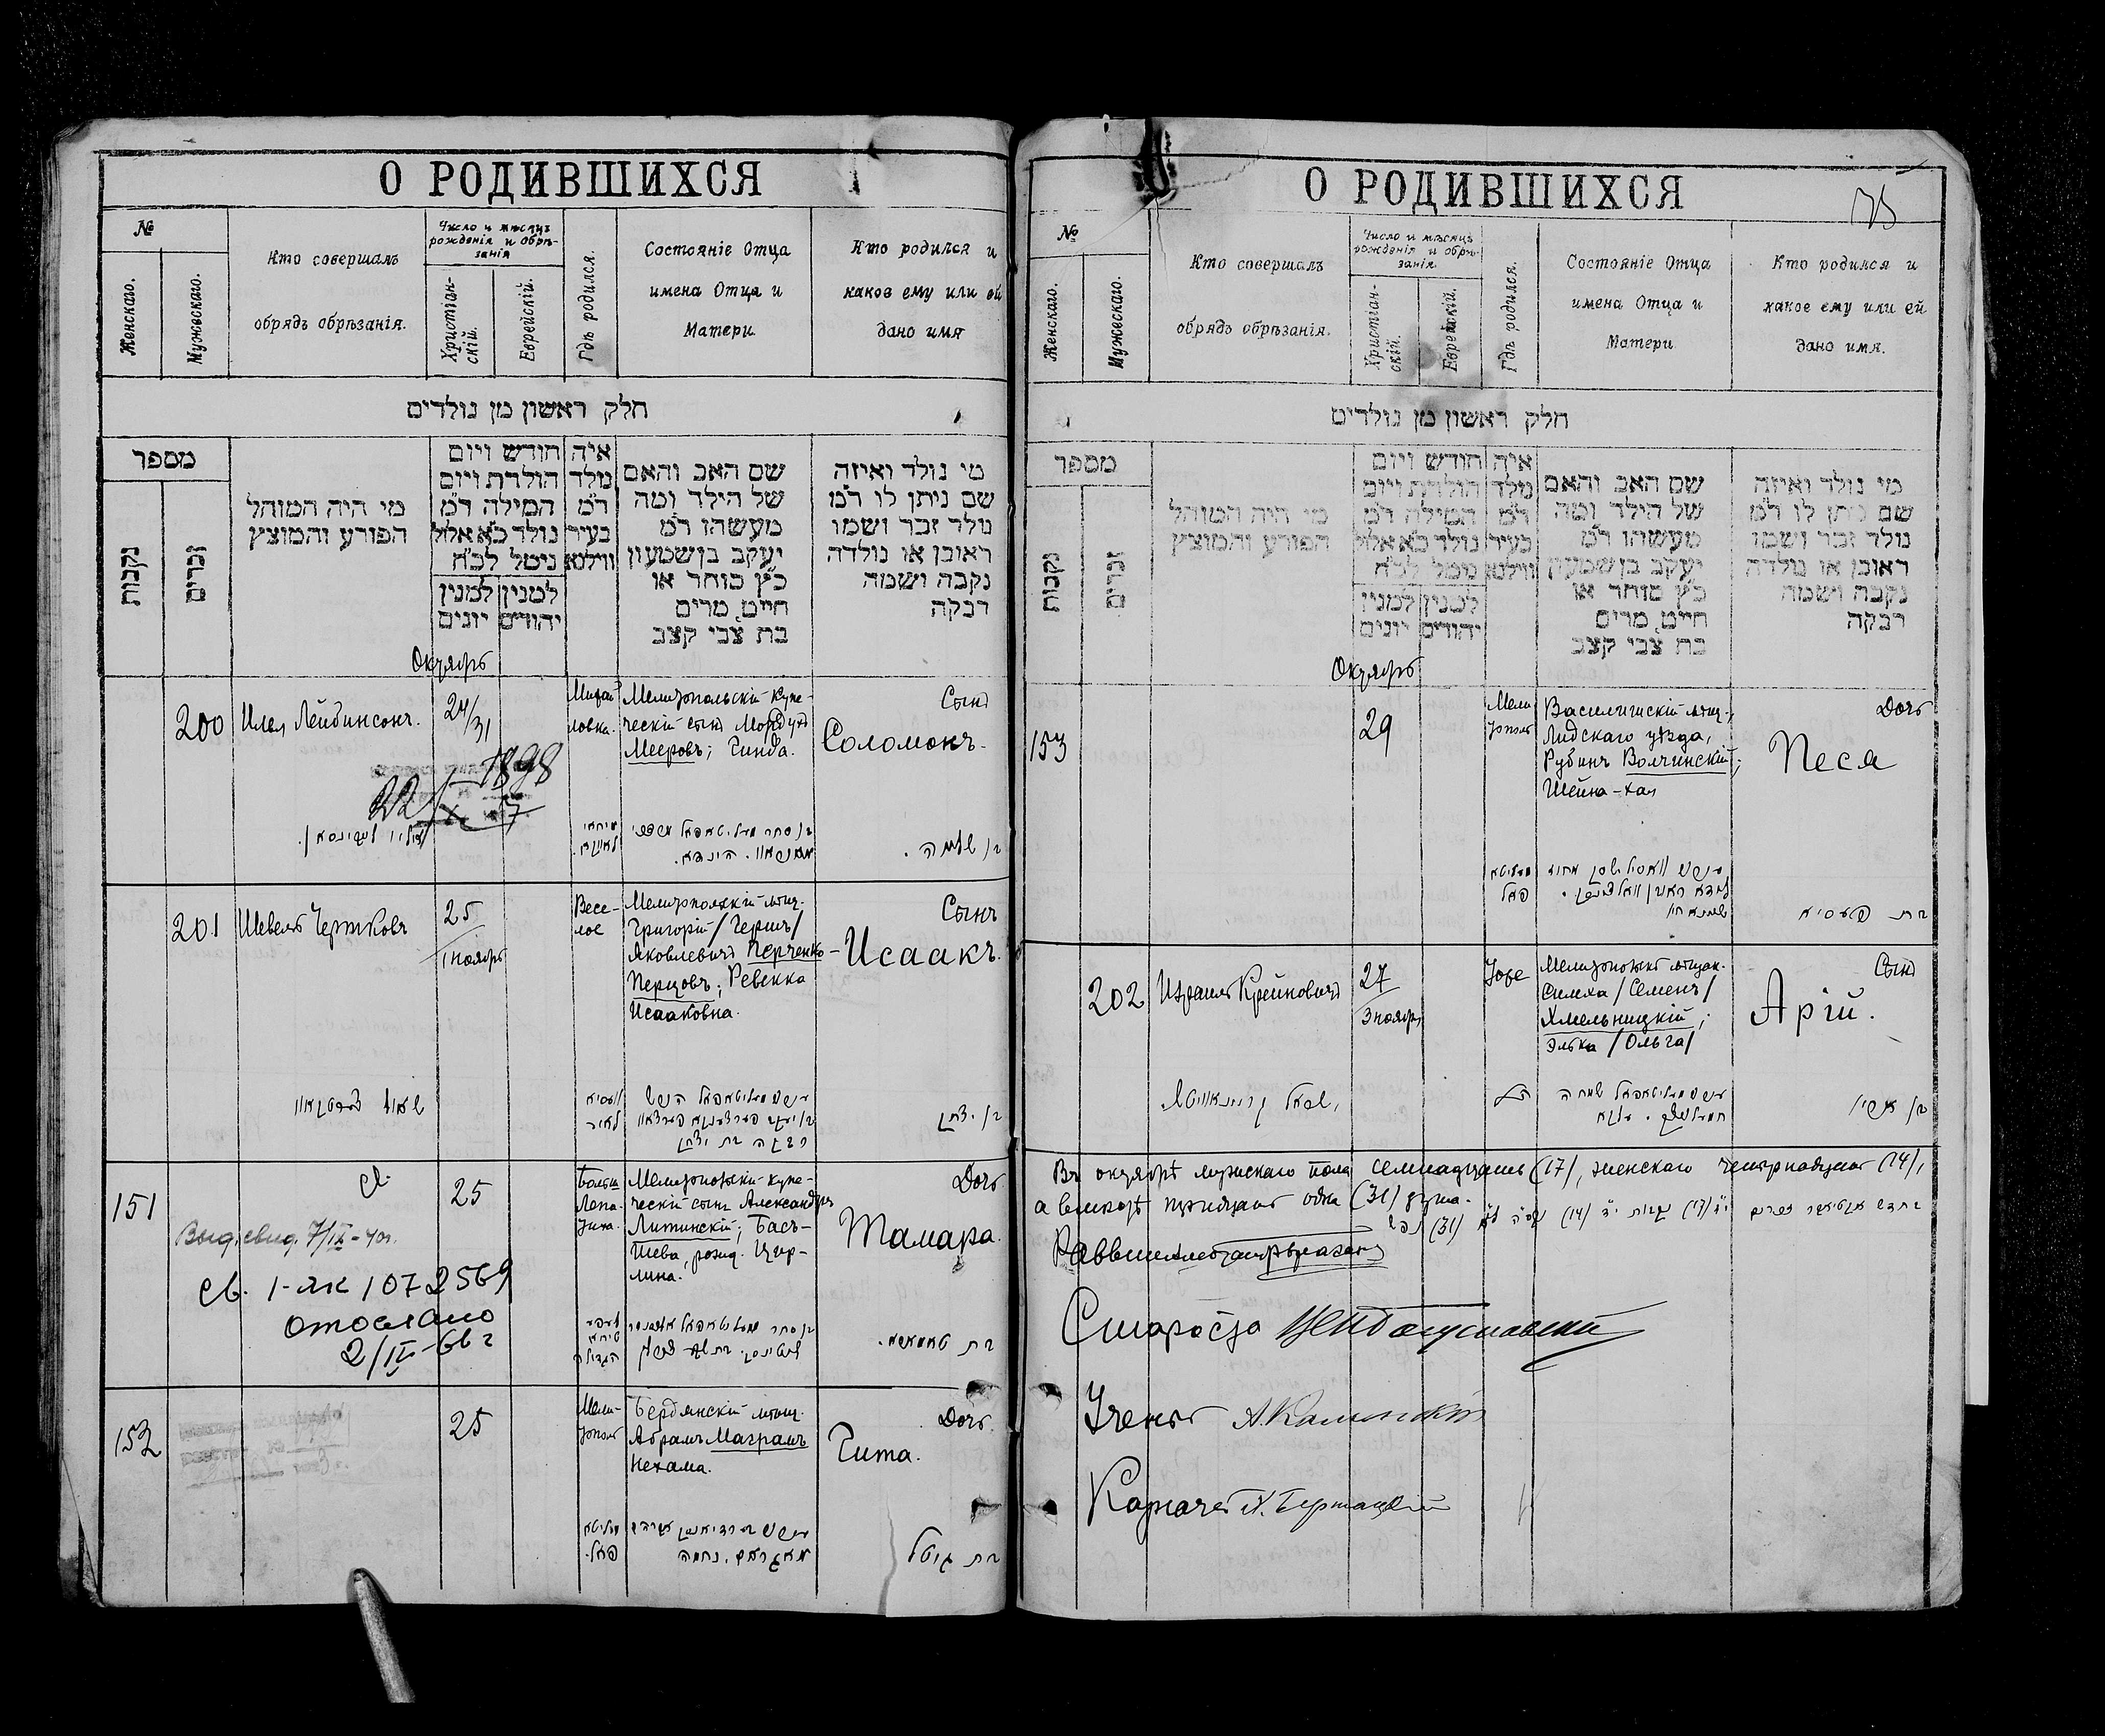 О РОДИВШИХСЯ
№
Женскаго.
Мужескаго.
Кто совершалъ
обрядъ обрѣзанія.
Число и мѣсяцъ
рожденія и обрѣ-
занія
Христіан-
скій.
Еврейскій.
Гдѣ родился.
Состояніе Отца
имена Отца и
Матери
Кто родился и
какое ему или ей
дано имя
חלק ראשון מן נולדים
מספר
נקבות
זכרים
מי היה המוהל
הפורע והמוצץ
חודש ויום
הולדת ויום
המילה ר״מ
נולד כ״א אלול
נימל לכ״ח
למנין
יהודים
למנין
יונים
איה
נולד
ר״מ
בעיר
ווילנא
שם האב והאם
של הילד ומה
מעשהו ר״מ
יעקב בן שמעון
כ״ץ סוחר או
חייט, מרים
בת צבי קצב
מי נולד ואיזה
שם ניתן לו ר״מ
נולד זכר ושמו
ראובן או נולדה
נקבה ושמה
רבקה
Октябрь
200
Илья Лейбинсонъ.
24/31
Михай
ловка.
Мелитопольскій купе-
ческій сынъ Мордухъ
Мееровъ; Гинда.
Сынъ
Соломонъ.
1898
בן שלמה.
201
Шевель Чертковъ
25
1 ноябрь
Весе-
лое
Мелитопольскій мѣщ.
Григорій /Гершъ/
Яковлевичъ Перченко-
Перцовъ; Ревекка
Исааковна.
Сынъ
Исаакъ.
שאול
רבקה בת יצחק
בן יצחק
151
св.
25
Больш
Лепа-
тиха.
Мелитопольскій купе-
ческій сынъ Александръ
Литинскій; Басъ-
Шева, рожд. Цир-
лина.
Дочь
Тамара.
Выд. свид. 7/IX-40г.
Св. 1-як 1072569
отослано
2/IV-66 г
בת טאמארא.
152
25
Мели-
тополь
Бердянскій мѣщ.
Абрамъ Маграмъ
Нехама.
Дочь.
Гита.
מאגראם, נחמה
בת גיטל
О РОДИВШИХСЯ
75
№
Женскаго.
Мужескаго.
Кто совершалъ
обрядъ обрѣзанія.
Число и мѣсяцъ
рожденія и обрѣ-
занія.
Христіан-
скій.
Еврейскій.
Гдѣ родился.
Состояніе Отца
имена Отца и
Матери
Кто родился и
какое ему или ей
дано имя.
חלק ראשון מן נולדים
מספר
נקבות
זכרים
מי היה המוהל
הפורע והמוצץ
חודש ויום
הולדת ויום
המילה ר״מ
נולד כ״א אלול
נימל לכ״ח
למנין
יהודים
למנין
יונים
איה
נולד
ר״מ
בעיר
ווילנא
שם האב והאם
של הילד ומה
מעשהו ר״מ
יעקב בן שמעון
כ״ץ סוחר או
חייט, מרים
בת צבי קצב
מי נולד ואיזה
שם ניתן לו ר״מ
נולד זכר ושמו
ראובן או נולדה
נקבה ושמה
רבקה
Октябрь
153
29
Мели
тополь
Василишскій мѣщ.,
Лидскаго уѣзда,
Рубинъ Волчинскій;
Шейна-Хая
Дочь
Песя
בת פעסיא
202
Израиль Крейновичъ
27
3 ноября
Мелитопольск. мѣщан.
Симха /Семенъ/
Хмельницкій;
Элька /Ольга/
Сынъ
Арій.
Въ октябрѣ мужскаго пола семнадцать (17), женскаго четырнадцать (14),
а всего тридцать одна (31) душа.
Раввинъ
Староста
Ученый А. Каменскій
Казначей